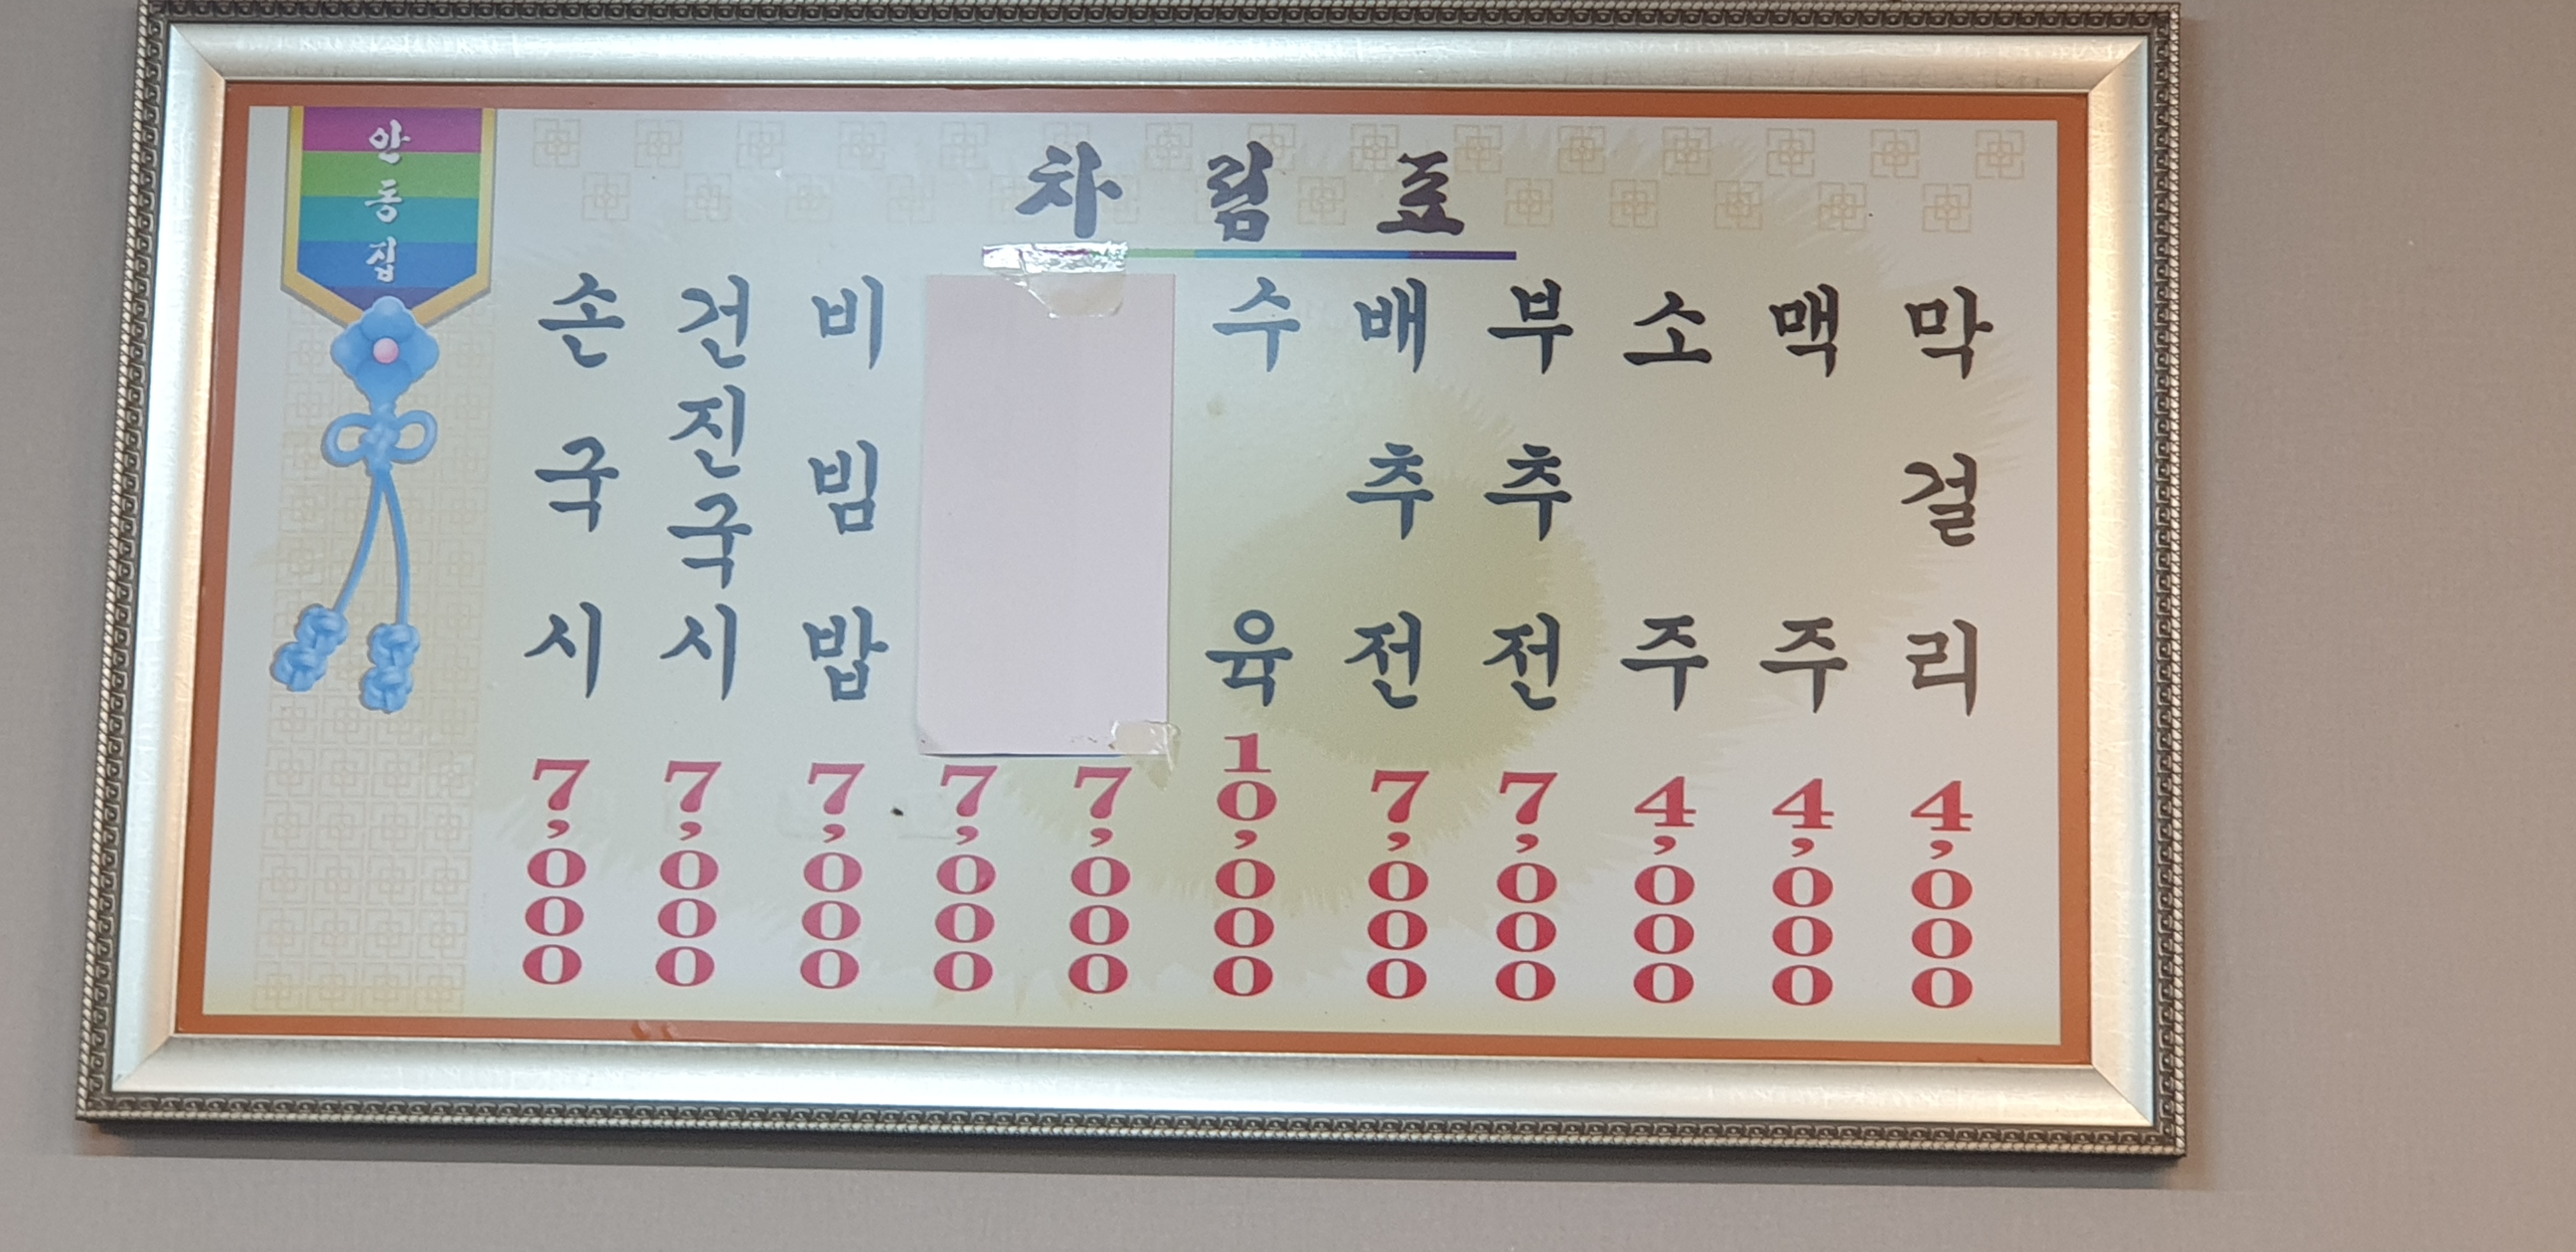 안동집
차림표
손국시 7,000
건진국시 7,000
비빔밥 7,000
7,000
7,000
수육 10,000
배추전 7,000
부추전 7,000
소주 4,000
맥주 4,000
막걸리 4,000